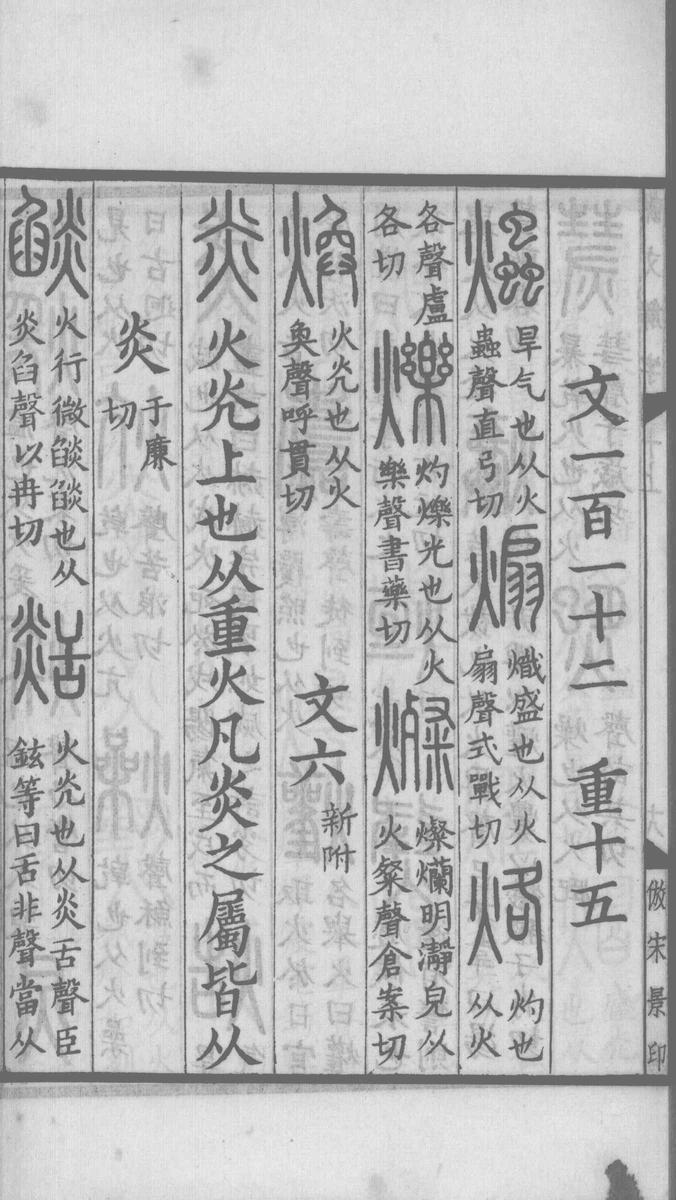 文一百一十二　重十五
爞 旱气也从火
蟲聲直弓切 煽 熾盛也从火
扇聲式戰切 烙 灼也
从火
各聲盧
各切 爍 灼爍光也从火
樂聲書藥切 燦 燦爤明瀞皃从
火粲聲倉案切
煥 火光也从火
奐聲呼貫切 文六 新附
炎 火光上也从重火凡炎之屬皆从
炎 于廉
切
燄 火行微燄燄也从
炎臽聲以冉切 㷿 火光也从炎舌聲臣
鉉等曰舌非聲當从
倣宋景印